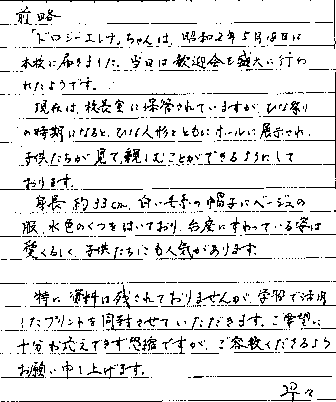 前略
「ドロシーエレナ」ちゃんは、昭和2年5月18日に
本校に届きました。当日は歓迎会も盛大に行わ
れたようです。
現在は、校長室に保管されていますが、ひな祭り
の時期になると、ひな人形とともにホールに展示され、
子供たちが見て、親しむことができるようにして
おります。
身長 約33cm、白い毛糸の帽子にベージュの
服、水色のくつをはいており、台座にすわっている姿は
愛くるしく、子供たちにも人気があります。
特に資料は残されておりませんが、学習で活用
したプリントを同封させていただきます。ご希望に
十分お応えできず恐縮ですが、ご容赦くださるよう
お願い申し上げます。
草々